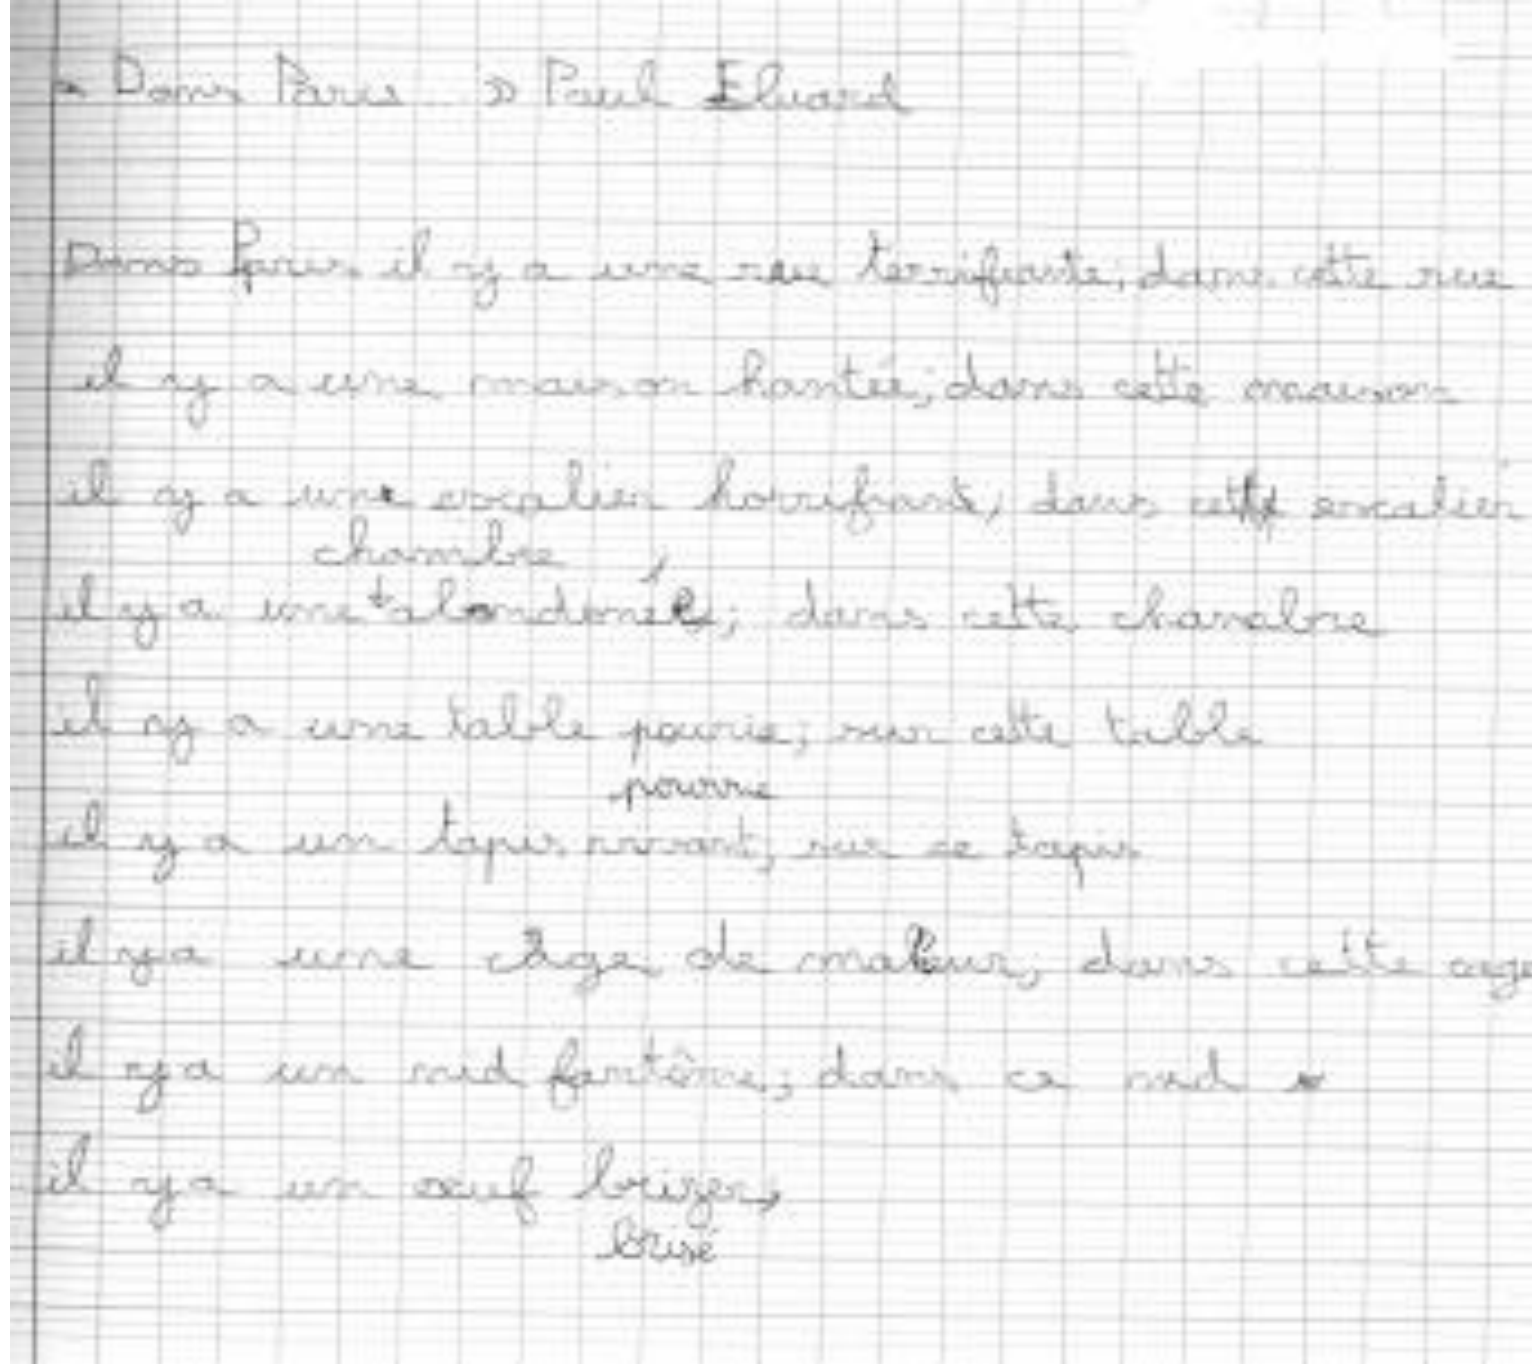 « Dans Paris » Paul Eluard
Dans Paris il y a une rue terrifiante; dans cette rue
il y a une maison hantée; dans cette maison
il y a un escalier horrifiant; dans cet escalier
chambre
il y a une + abondonée; dans cette chambre
il y a une table pourie; sur cette table
pourrie
il y a un tapis vivant; sur ce tapis
il y a une câge de maleur; dans cette cage
il y a un nid fantôme; dans ce nid
il y a un œuf brizer,
brisé